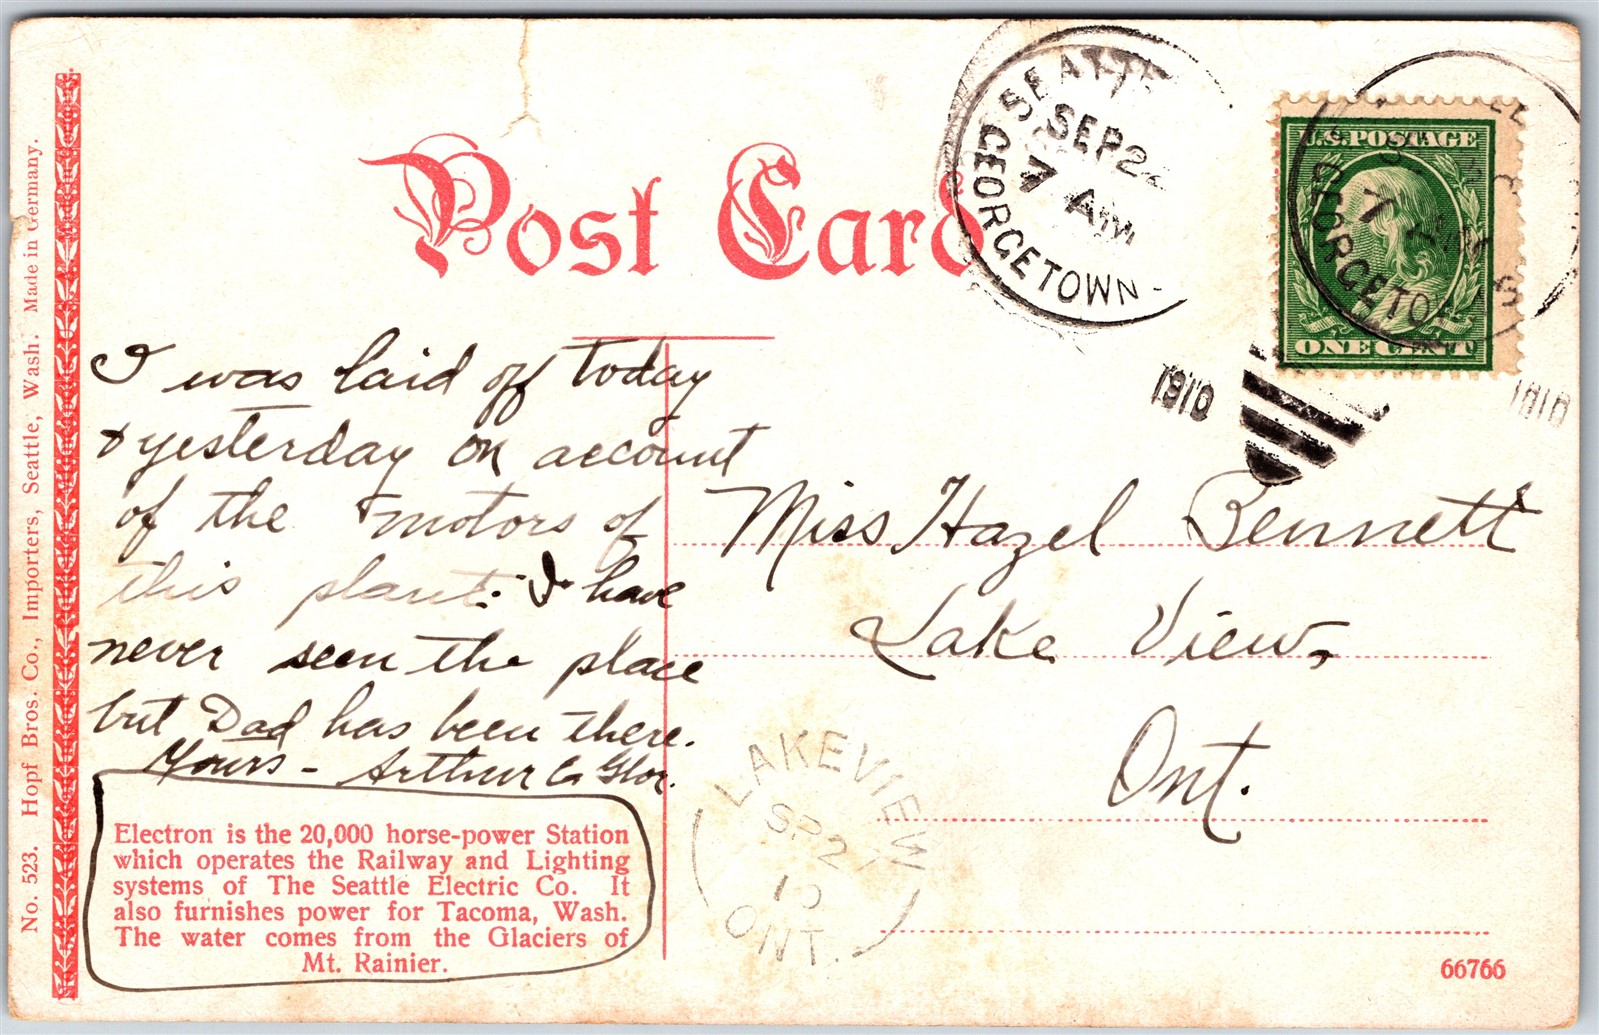 Post Card
SEATTLE
SEP 2
7 AM
GEORGETOWN
1910
U.S. POSTAGE
ONE CENT
7 AM
GEORGETO
1910
I was laid off today
& yesterday on account
of the motors of
this plant. I have
never seen the place
but Dad has been there.
Yours - Arthur
Miss Hazel Bennett
Lake View,
Ont.
LAKEVIEW
SP 2
10
ONT.
Electron is the 20,000 horse-power Station
which operates the Railway and Lighting
systems of The Seattle Electric Co. It
also furnishes power for Tacoma, Wash.
The water comes from the Glaciers of
Mt. Rainier.
No. 523. Hopf Bros. Co., Importers, Seattle, Wash. Made in Germany.
66766